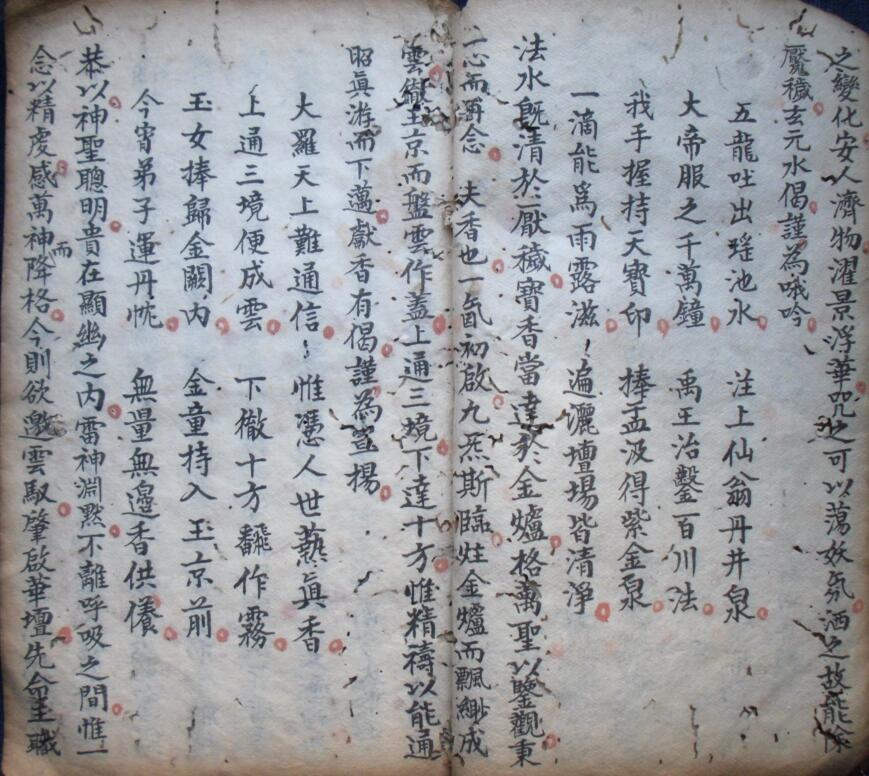 之變化安人濟物濯景浮華咒之可以蕩妖氛洒之故能除
魘穢玄元水偈謹為哦吟
五龍吐出瑤池水 注上仙翁丹井泉
大帝服之千萬鐘 禹王治鑿百川法
我手握持天寶印 捧盂汲得紫金泉
一滴能為雨露滋 遍灑壇場皆清淨
法水既清於厭穢寶香當達於金爐格萬聖以鑒觀東
一心而 念 夫香也一氤初啟九炁斯臨炷金爐而飄緲成
雲 玉京而盤雲作蓋上通三境下達十方惟精禱以能通
昭眞遊而下邁献香有偈謹為宣揚
大羅天上難通信 惟憑人世爇眞香
上通三境便成雲 下徹十方飜作霧
玉女捧歸金闕內 金童持入玉京前
今宵弟子運丹忱 無量無邊香供養
恭以神聖聰明貴在顯幽之內雷神淵默不離呼吸之間惟一
念以精虔感萬神而降格今則欲邀雲馭肇啟華壇先命主職